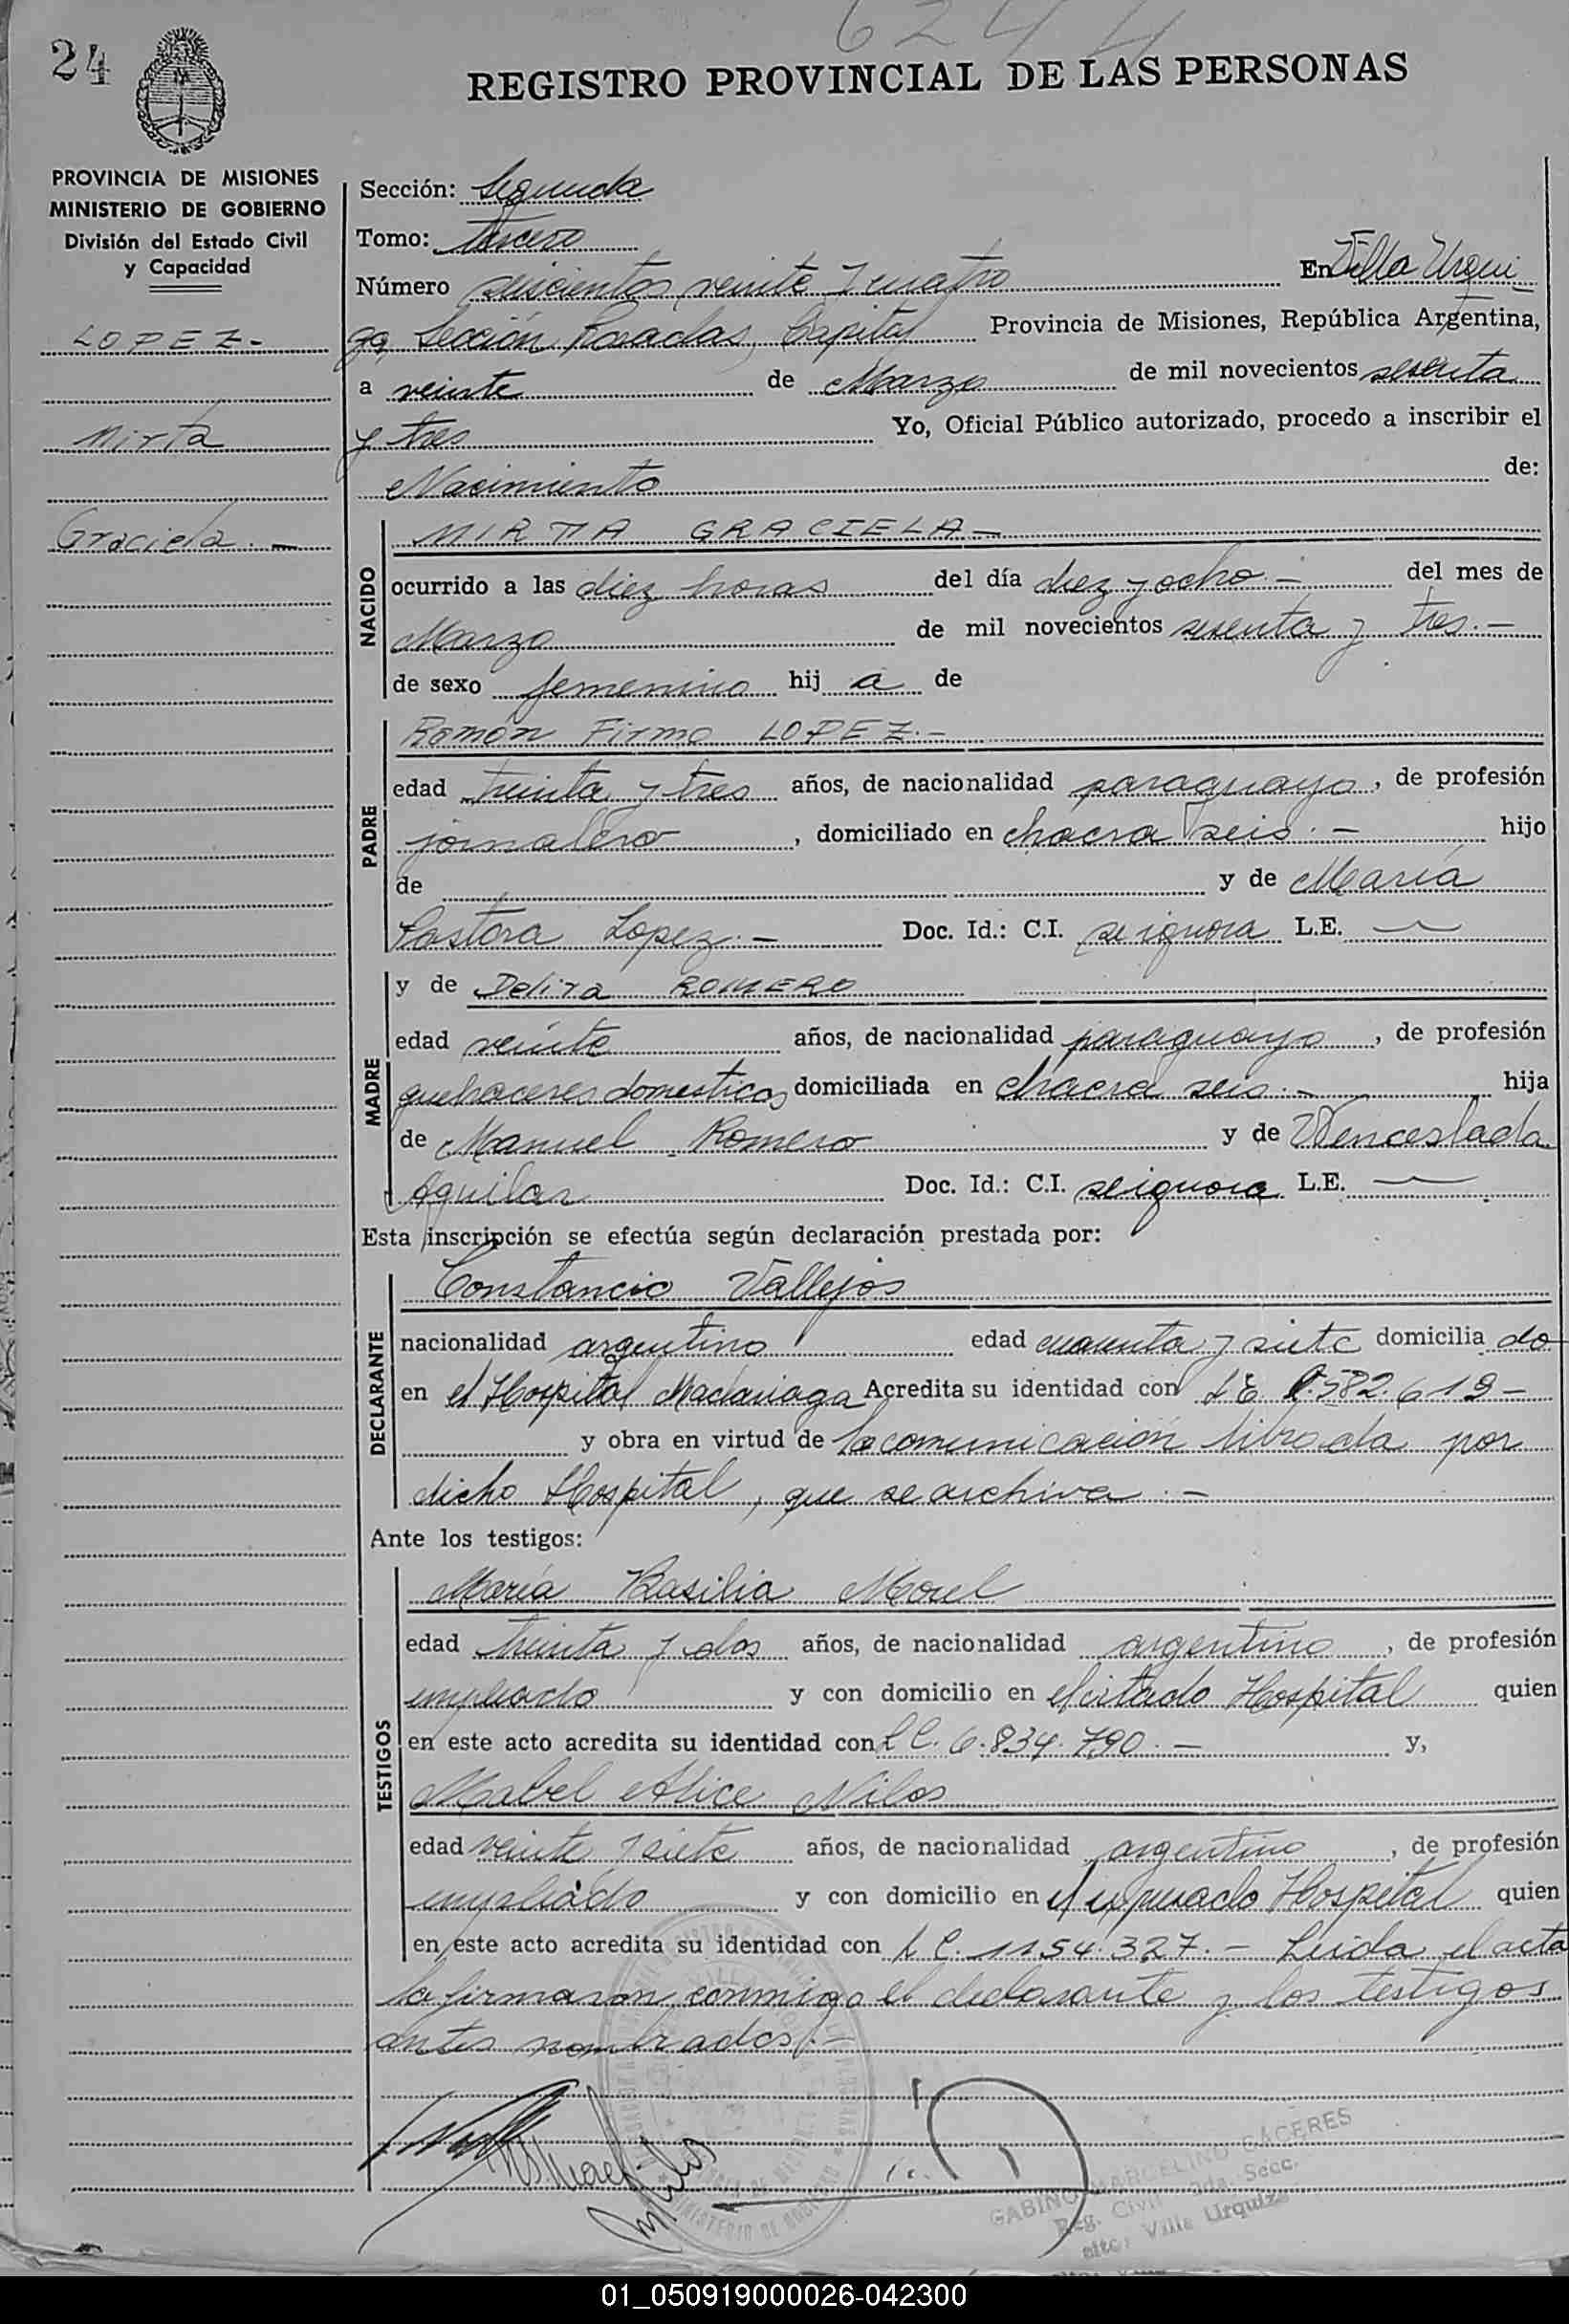 624
24
REGISTRO PROVINCIAL DE LAS PERSONAS
PROVINCIA DE MISIONES
MINISTERIO DE GOBIERNO
División del Estado Civil
y Capacidad
LOPEZ.-
Mirta
Graciela.-
Sección: Segunda
Tomo: tercero
Número seiscientos veinte y cuatro En Villa Urqui
za, Sección Posadas, Capital Provincia de Misiones, República Argentina,
a veinte de Marzo de mil novecientos sesenta
y tres Yo, Oficial Público autorizado, procedo a inscribir el
Nacimiento de:
NACIDO
MIRTA GRACIELA.-
ocurrido a las diez horas del día diez y ocho.- del mes de
Marzo de mil novecientos sesenta y tres.-
de sexo femenino hij a de
PADRE
Ramón Firmo LOPEZ.-
edad treinta y tres años, de nacionalidad paraguayo, de profesión
jornalero, domiciliado en chacra seis.- hijo
de y de María
Pastora Lopez.- Doc. Id.: C.I. se ignora L.E. —
MADRE
y de Delira ROMERO
edad veinte años, de nacionalidad paraguayo, de profesión
quehaceres domesticos domiciliada en chacra seis.- hija
de Manuel Romero y de Wenceslada
Aguilar Doc. Id.: C.I. se ignora L.E. —
Esta inscripción se efectúa según declaración prestada por:
DECLARANTE
Constancio Vallejos
nacionalidad argentino edad cuarenta y siete domicilia do
en el Hospital Madariaga Acredita su identidad con L E 582.619-
y obra en virtud de la comunicación librada por
dicho Hospital, que se archiva.-
Ante los testigos:
TESTIGOS
María Basilia Morel
edad treinta y dos años, de nacionalidad argentino, de profesión
empleado y con domicilio en el citado Hospital quien
en este acto acredita su identidad con L C. 6.834.790.- y,
Mabel Alice Nilos
edad veinte y siete años, de nacionalidad argentino, de profesión
empleado y con domicilio en el expresado Hospital quien
en este acto acredita su identidad con L C. 1154.327.- Leida el acta
la firmaron conmigo el declarante y los testigos
antes nombrados.-
GABINO MARCELINO CACERES
Reg. Civil 2da. Secc.
Villa Urquiza
01_050919000026-042300